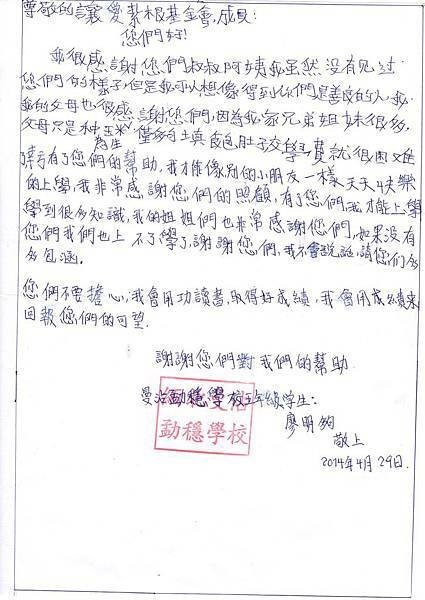 尊敬的讓愛紮根基金會,成員:
您們好!
我很感謝您們叔叔阿姨我雖然没有见过
您們的樣子,但是我可以想像得到你們是善良的人,我
我的父母也很感謝您們,因為我家兄弟姐妹很多,
父母只是种玉米為生僅夠填飽肚子交學費就很困難
幸亏有了您們的幫助,我才能像别的小朋友一樣天天快樂
的上學,我非常感謝您們的照顧,有了您們,我才能上學
學到很多知識,我的姐姐們也非常感謝您們,如果没有
您們我們也上不了學了,謝謝您們,我不會說話,請您们多
多包涵。
您們不要擔心,我會用功讀書,取得好成績,我會用成績來
回報您們的可望.
謝謝您們對我們的幫助
曼治勐穩學校五年級学生:
勐穩學校
廖明夠
敬上
2014年4月29日.